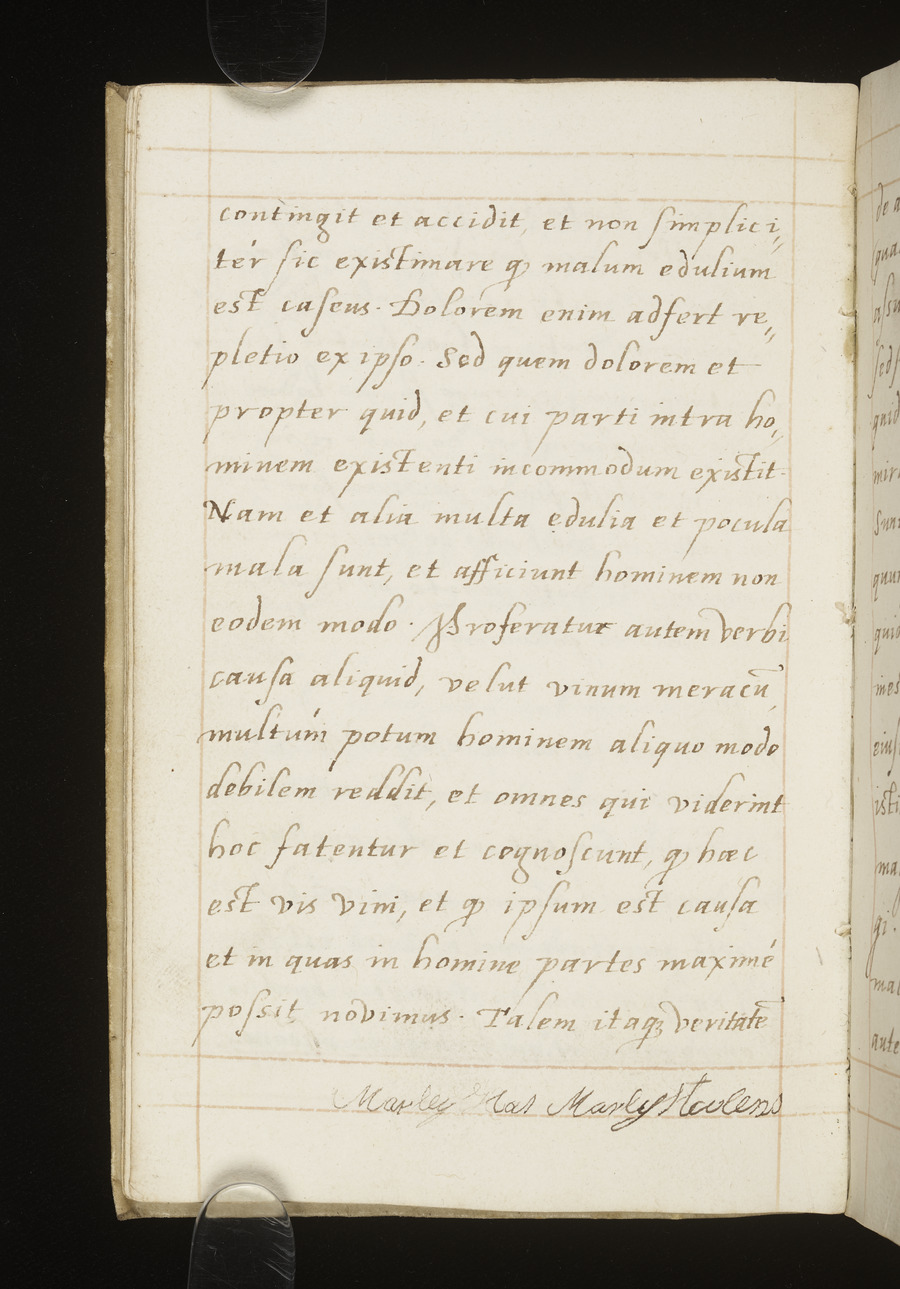 contingit et accidit, et non simplici,,
tér sic existimare ꝙ malum edulium
est caseus. Dolorem enim adfert re,,
pletio ex ipso. Sed quem dolorem et
propter quid, et cui parti intra ho,,
minem existenti incommodum existit.
Nam et alia multa edulia et pocula
mala sunt, et afficiunt hominem non
eodem modo. Proferatur autem verbi
causa aliquid, velut vinum meracū
multúm potum hominem aliquo modo
debilem reddit, et omnes qui viderint
hoc fatentur et cognoscunt, ꝙ hæc
est vis vini, et ꝙ ipsum est causa
et in quas in homine partes maximé
possit novimus. Talem itaqꝫ veritatē
Marley Marley
de a
qua
assu
sed s
quid
mir
Sun
quu
quid
mes
eius
isti
ma
gi.
mal
aute